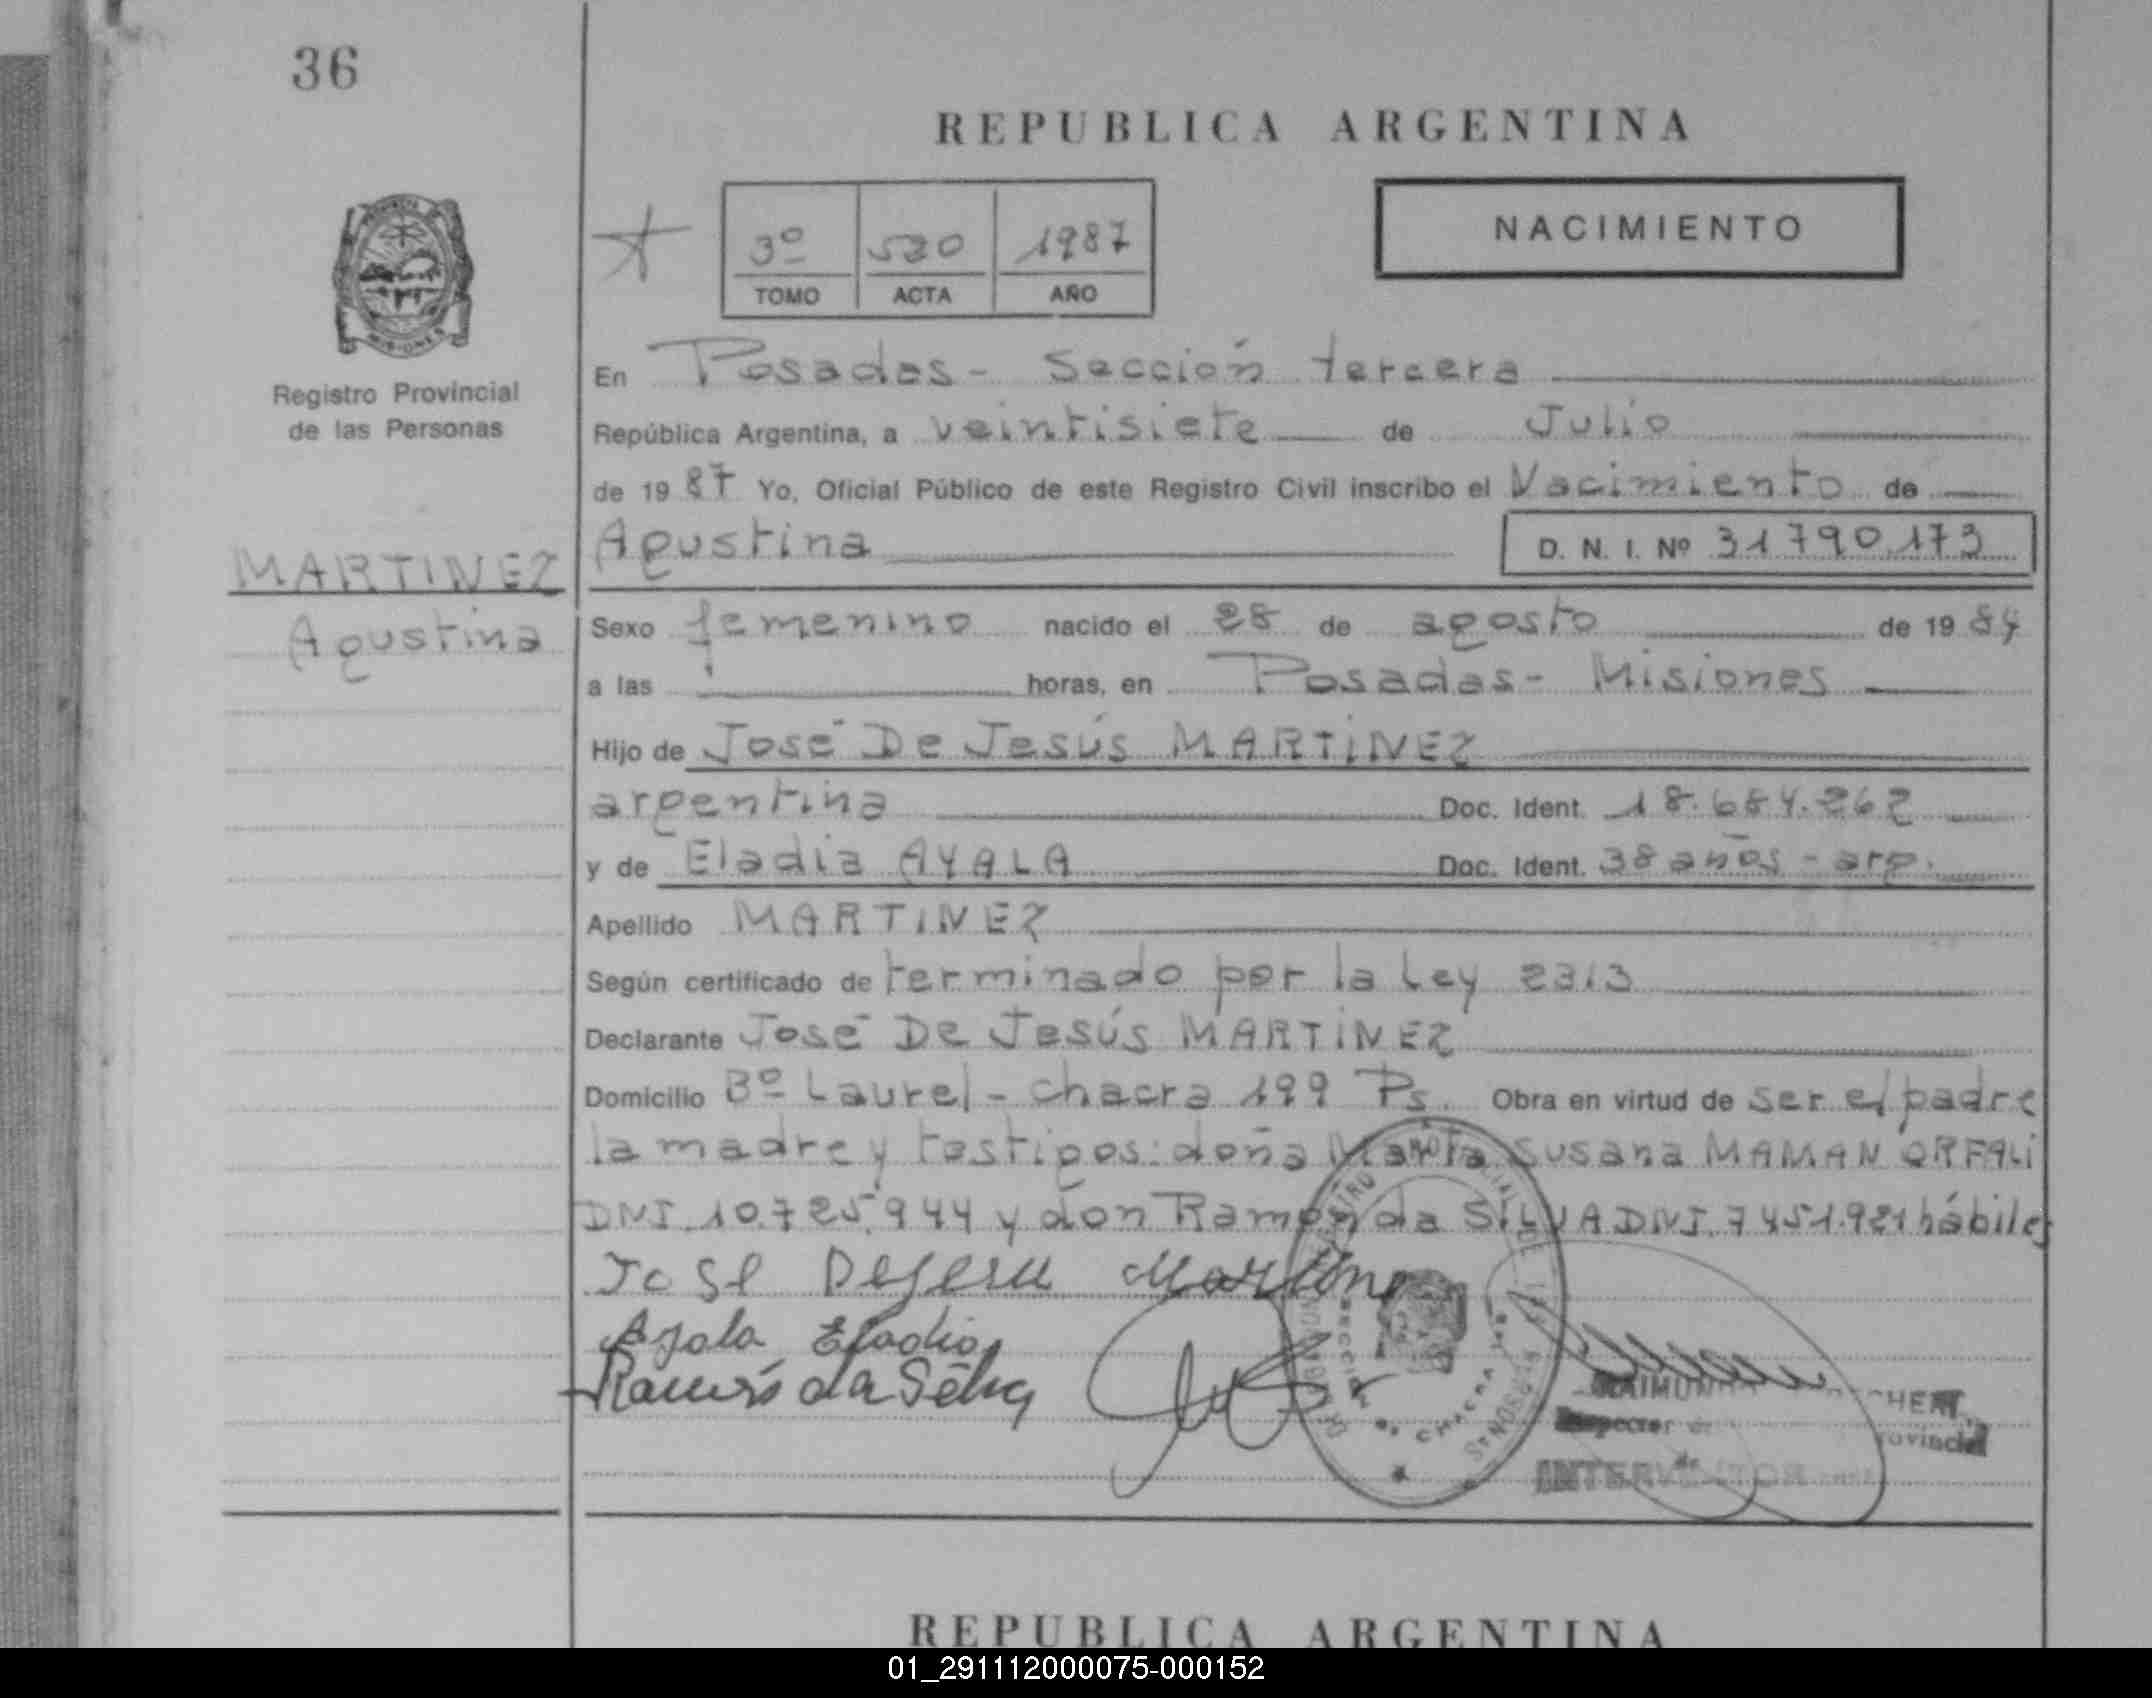 36
REPUBLICA ARGENTINA
NACIMIENTO
3º 520 1987
TOMO ACTA AÑO
Registro Provincial
de las Personas
En Posadas - Sección tercera
República Argentina, a veintisiete de Julio
de 1987 Yo, Oficial Público de este Registro Civil inscribo el Nacimiento de
Agustina D. N. I. Nº 31790.173
MARTINEZ
Agustina
Sexo femenino nacido el 28 de agosto de 1984
a las horas, en Posadas - Misiones
Hijo de José De Jesús MARTINEZ
argentina Doc. Ident. 18.684.262
y de Eladia AYALA Doc. Ident. 38 años - arg.
Apellido MARTINEZ
Según certificado de terminado por la Ley 23.13
Declarante José De Jesús MARTINEZ
Domicilio Bº Laurel - chacra 199 Ps. Obra en virtud de ser el padre
la madre y testigos: doña María Susana MAMAN ORFALI
DNI. 10.725.944 y don Ramón da SILVA DNI. 7451.921 hábiles
Jose Dejesu Martine
Ayala Eladia
Ramón da Silva
INTERVENTOR
REPUBLICA ARGENTINA
01_291112000075-000152